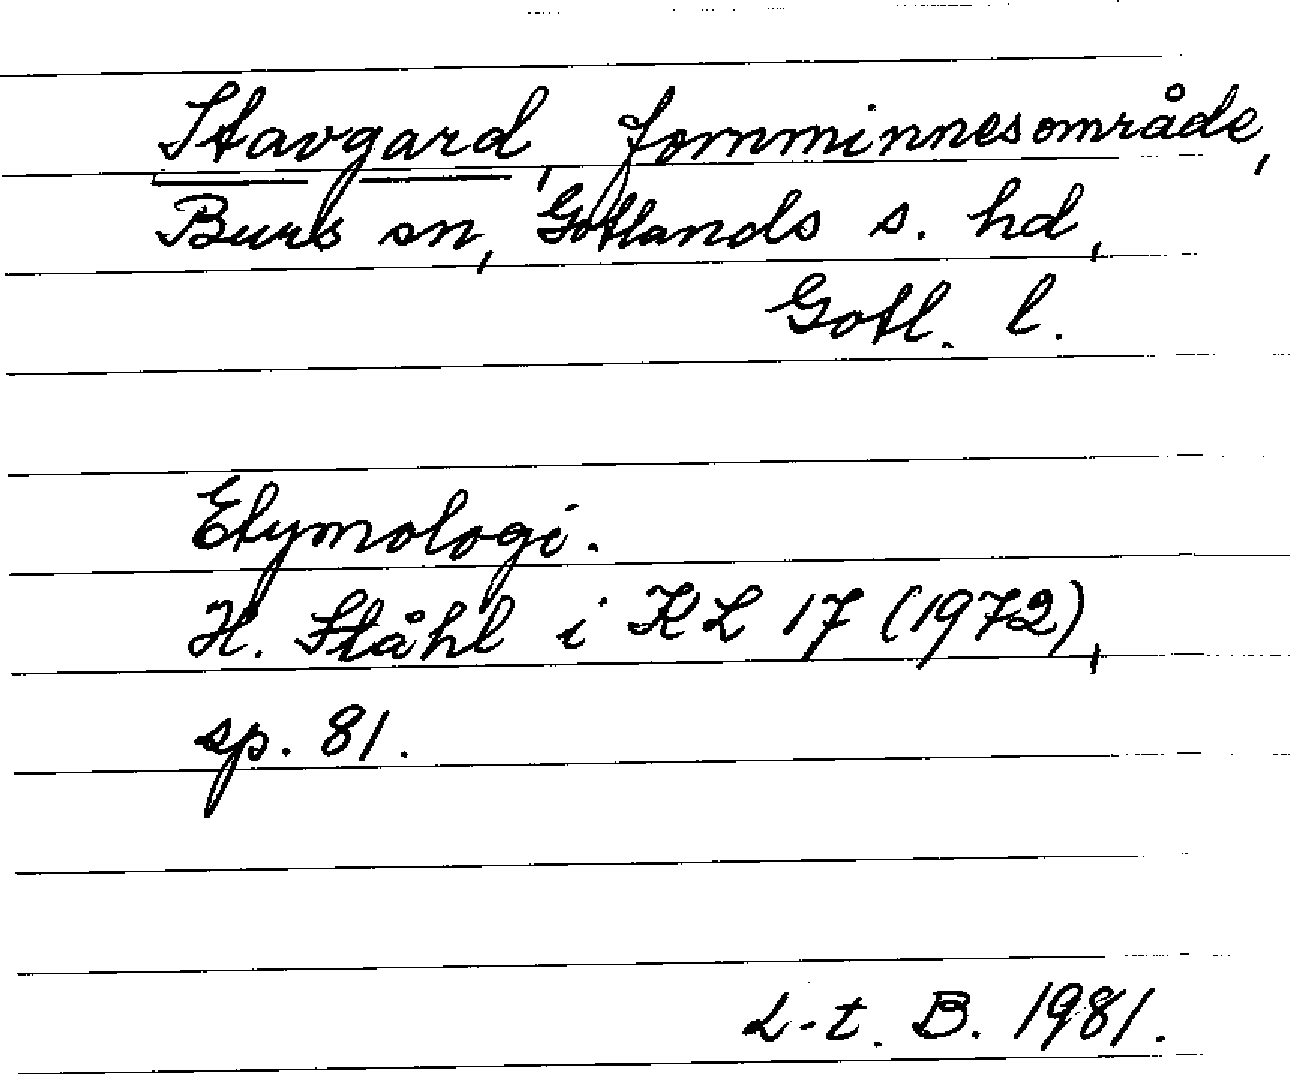 Stavgard, fornminnesområde,
Burs sn, Gotlands s. hd,
Gotl. l.
Etymologi.
H. Ståhl i KL 17 (1972),
sp. 81.
L-t. B. 1981.